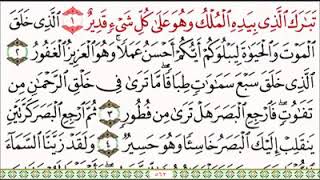 تَبَٰرَكَ ٱلَّذِى بِيَدِهِ ٱلْمُلْكُ وَهُوَ عَلَىٰ كُلِّ شَىْءٍ قَدِيرٌ ١ ٱلَّذِى خَلَقَ
ٱلْمَوْتَ وَٱلْحَيَوٰةَ لِيَبْلُوَكُمْ أَيُّكُمْ أَحْسَنُ عَمَلًا وَهُوَ ٱلْعَزِيزُ ٱلْغَفُورُ ٢
ٱلَّذِى خَلَقَ سَبْعَ سَمَٰوَٰتٍ طِبَاقًا مَّا تَرَىٰ فِى خَلْقِ ٱلرَّحْمَٰنِ مِن
تَفَٰوُتٍ فَٱرْجِعِ ٱلْبَصَرَ هَلْ تَرَىٰ مِن فُطُورٍ ٣ ثُمَّ ٱرْجِعِ ٱلْبَصَرَ كَرَّتَيْنِ
يَنقَلِبْ إِلَيْكَ ٱلْبَصَرُ خَاسِئًا وَهُوَ حَسِيرٌ ٤ وَلَقَدْ زَيَّنَّا ٱلسَّمَآءَ
٥٦٢